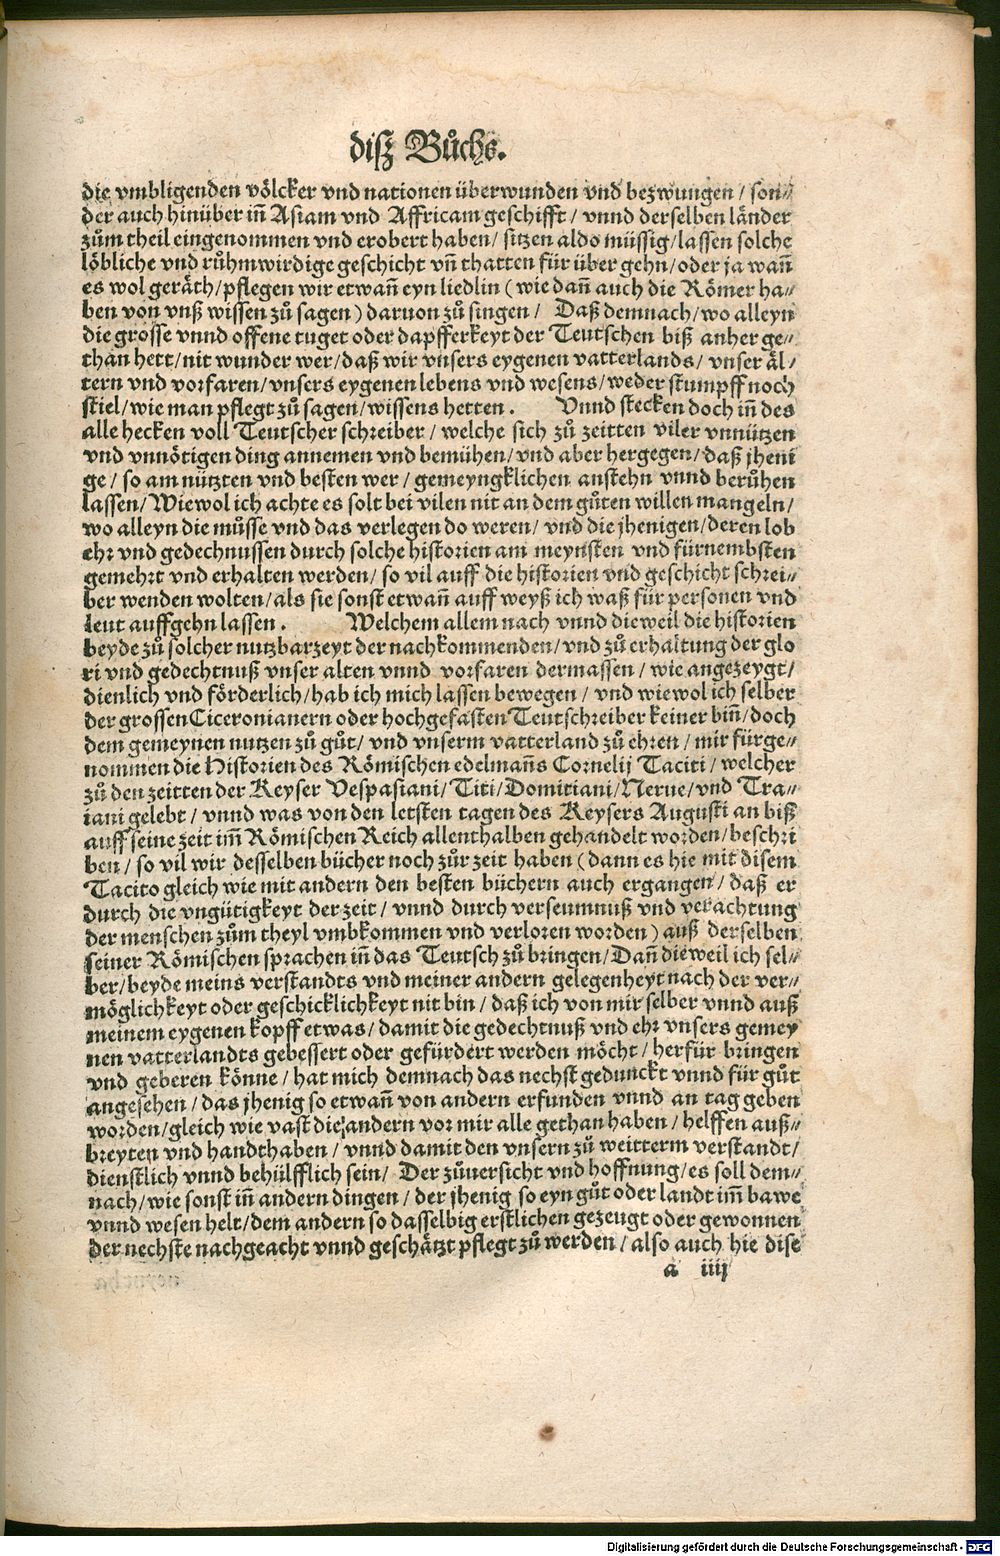 disz Bůchs.
die vmbligenden völcker vnd nationen überwunden vnd bezwungen / son⸗
der auch hinüber iñ Asiam vnd Affricam geschifft / vnnd derselben länder
zům theil eingenommen vnd erobert haben / sitzen aldo müssig / lassen solche
löbliche vnd růhmwirdige geschicht vñ thatten für über gehn / oder ja wañ
es wol geräth / pflegen wir etwañ eyn liedlin ( wie dañ auch die Römer ha⸗
ben von vnß wissen zů sagen ) daruon zů singen / Daß demnach / wo alleyn
die grosse vnnd offene tuget oder dapfferkeyt der Teutschen biß anher ge⸗
than hett / nit wunder wer / daß wir vnsers eygenen vatterlands / vnser äl⸗
tern vnd vorfaren / vnsers eygenen lebens vnd wesens / weder stumpff noch
stiel / wie man pflegt zů sagen / wissens hetten . Vnnd stecken doch iñ des
alle hecken voll Teutscher schreiber / welche sich zů zeitten viler vnnützen
vnd vnnötigen ding annemen vnd bemühen / vnd aber hergegen / daß jheni
ge / so am nützten vnd besten wer / gemeyngklichen anstehn vnnd berůhen
lassen / Wiewol ich achte es solt bei vilen nit an dem gůten willen mangeln /
wo alleyn die můsse vnd das verlegen do weren / vnd die jhenigen / deren lob
ehr vnd gedechnussen durch solche historien am meynsten vnd fürnembsten
gemehrt vnd erhalten werden / so vil auff die historien vnd geschicht schrei⸗
ber wenden wolten / als sie sonst etwañ auff weyß ich waß für personen vnd
leut auffgehn lassen . Welchem allem nach vnnd dieweil die historien
beyde zů solcher nutzbarzeyt der nachkommenden / vnd zů erhaltung der glo
ri vnd gedechtnuß vnser alten vnnd vorfaren dermassen / wie angezeygt /
dienlich vnd förderlich / hab ich mich lassen bewegen / vnd wiewol ich selber
der grossen Ciceronianern oder hochgefasten Teutschreiber keiner biñ / doch
dem gemeynen nutzen zů gůt / vnd vnserm vatterland zů ehren / mir fürge⸗
nommen die Historien des Römischen edelmañs Cornelij Taciti / welcher
zů den zeitten der Keyser Vespasiani / Titi / Domitiani / Nerue / vnd Tra⸗
iani gelebt / vnnd was von den letsten tagen des Keysers Augusti an biß
auff seine zeit im̃ Römischen Reich allenthalben gehandelt worden / beschri
ben / so vil wir desselben bücher noch zůr zeit haben ( dann es hie mit disem
Tacito gleich wie mit andern den besten büchern auch ergangen / daß er
durch die vngütigkeyt der zeit / vnnd durch verseumnuß vnd verachtung
der menschen zům theyl vmbkommen vnd verloren worden ) auß derselben
seiner Römischen sprachen iñ das Teutsch zů bringen / Dañ dieweil ich sel⸗
ber / beyde meins verstandts vnd meiner andern gelegenheyt nach der ver⸗
möglichkeyt oder geschicklichkeyt nit bin / daß ich von mir selber vnnd auß
meinem eygenen kopff etwas / damit die gedechtnuß vnd ehr vnsers gemey
nen vatterlandts gebessert oder gefürdert werden möcht / herfür bringen
vnd geberen könne / hat mich demnach das nechst gedunckt vnnd für gůt
angesehen / das jhenig so etwañ von andern erfunden vnnd an tag geben
worden / gleich wie vast die andern vor mir alle gethan haben / helffen auß⸗
breyten vnd handthaben / vnnd damit den vnsern zů weitterm verstandt /
dienstlich vnnd behülfflich sein / Der zůuersicht vnd hoffnung / es soll dem⸗
nach / wie sonst im̃ andern dingen / der jhenig so eyn gůt oder landt im̃ bawe
vnnd wesen helt / dem andern so dasselbig erstlichen gezeugt oder gewonnen
der nechste nachgeacht vnnd geschätzt pflegt zů werden / also auch hie dise
a iiij
Digitalisierung gefördert durch die Deutsche Forschungsgemeinschaft - DFG